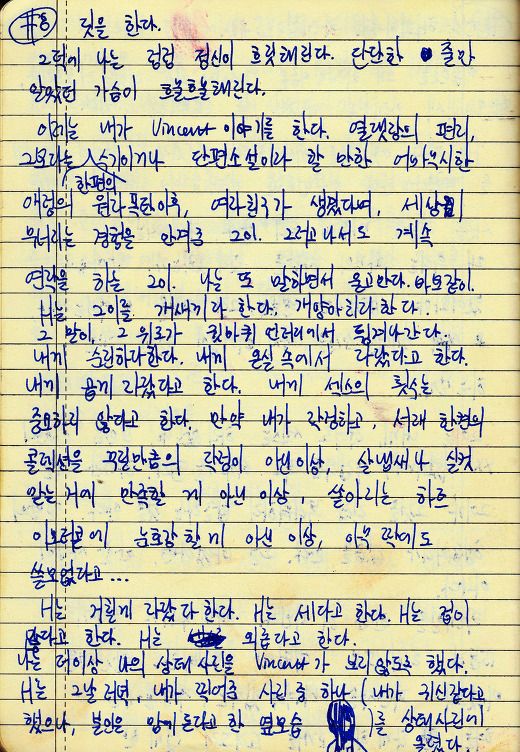 #8 짓을 한다.
그 덕에 나는 점점 정신이 흐릿해린다. 단단한 줄만
알았던 가슴이 흐물흐물해린다.
이제는 내가 Vincent 이야기를 한다. 열댓장의 편지,
수기이거나 단편소설이라 할 만한 어마무시한
한편의
애정의 원자폭탄이후, 여자친구가 생겼다며, 세상이
무너지는 경험을 안겨준 그이. 그러고나서도 계속
연락을 하는 그이. 나는 또 말하면서 울고만다. 바보같이.
H는 그이를 개새끼라 한다. 개양아치라 한다.
그 말이, 그 위로가 귓바퀴 언저리에서 튕겨나간다.
내게 순진하다 한다. 내게 온실 속에서 자랐다고 한다.
내게 곱게 자랐다고 한다. 내게 섹스의 횟수는
중요하지 않다고 한다. 만약 내가 작정하고, 서래 한편의
콜렉션을 꾸릴만큼의 작정이 아닌이상, 살냄새나 실컷
맡는거에 만족할 게 아닌 이상, 쌀아리는
에 눈호강 할 게 아닌 이상, 아무 짝에도
쓸모없다고...
H는 거칠게 자랐다 한다. H는 세다고 한다. H는 정이
많다고 한다. H는 외롭다고 한다.
나는 더이상 나의 상태사진을 Vincent가 보지 않도록 했다.
H는 그날 저녁, 내가 찍어준 사진 중 하나 (내가 귀신같다고
했으나, 본인은 맘에 든다고 한 옆모습 )를 상태사진에
올렸다.